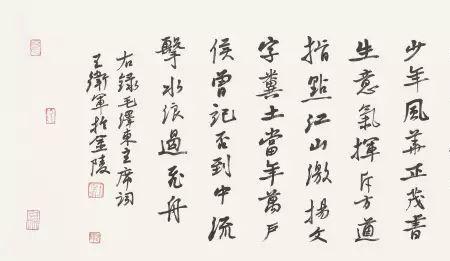 少年風華正茂書
生意氣揮斥方遒
指點江山激揚文
字糞土當年萬戶
侯曾記否到中流
擊水浪遏飛舟
右錄毛澤東主席詞
王衛軍於金陵